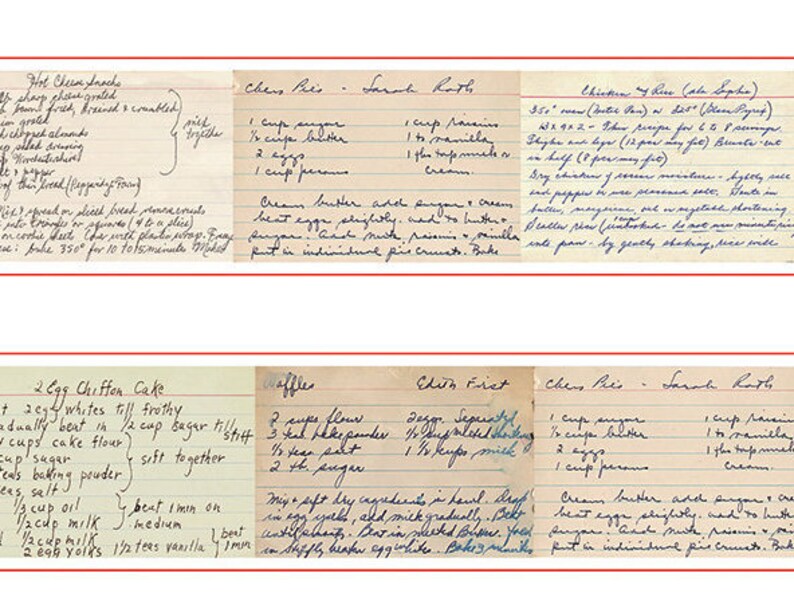 Hot Cheese Snacks
sharp cheese grated
bacon fried, drained & crumbled
onion grated
chopped almonds
cup salad dressing
Worchestershire
& pepper
of thin bread (Pepperidge Farm)
mix together
spread on sliced bread remove crusts
into triangles or squares (4 to a slice)
on cookie sheet Cover with plastic wrap. Freeze
bake 350° for 10 to 15 minutes Makes
Chess Pies - Sarah Roth
1 cup sugar 1 cup raisins
1/2 cup butter 1 ts vanilla
2 eggs 1 tbs top milk or
1 cup pecans cream.
Cream butter add sugar & cream
beat eggs slightly. add to butter &
sugar. Add nuts, raisins & vanilla
put in individual pie crusts. Bake
Chicken & Rice (ala Sophie)
350° oven (Metal Pan) or 325° (Glass Pyrex)
13 x 9 x 2 - This recipe for 6 to 8 servings.
Thighs and legs (12 pan may fit) Breasts - cut
in half (8 pan may fit)
Dry chicken & remove moisture - lightly salt
and pepper or use seasoned salt. Sauté in
butter, margarine, oil or vegetable shortening.
Scatter rice (uncooked - do not use minute rice
into pan - by gently shaking, rice will
2 Egg Chiffon Cake
2 egg whites till frothy
gradually beat in 1/2 cup sugar till stiff
cups cake flour
cup sugar
teas baking powder
teas salt
sift together
1/3 cup oil
1/2 cup milk
beat 1 min on medium
1/2 cup milk
2 egg yolks 1 1/2 teas vanilla
beat 1 min
Waffles Edith First
2 cups flour 2 eggs. Separated
3 teas bake powder 1/2 cup melted shortening
1/2 teas salt 1 1/2 cups milk
2 tb. sugar
Mix & sift dry ingredients in bowl. Drop
in egg yolks, add milk gradually. Beat
until smooth. Beat in melted Butter. fold
in stiffly beaten egg whites. Bake 3 minutes
Chess Pies - Sarah Roth
1 cup sugar 1 cup raisins
1/2 cup butter 1 ts vanilla
2 eggs 1 tbs top milk
1 cup pecans cream.
Cream butter add sugar &
beat eggs slightly. add to butter
sugar. Add nuts, raisins &
put in individual pie crusts. Bake